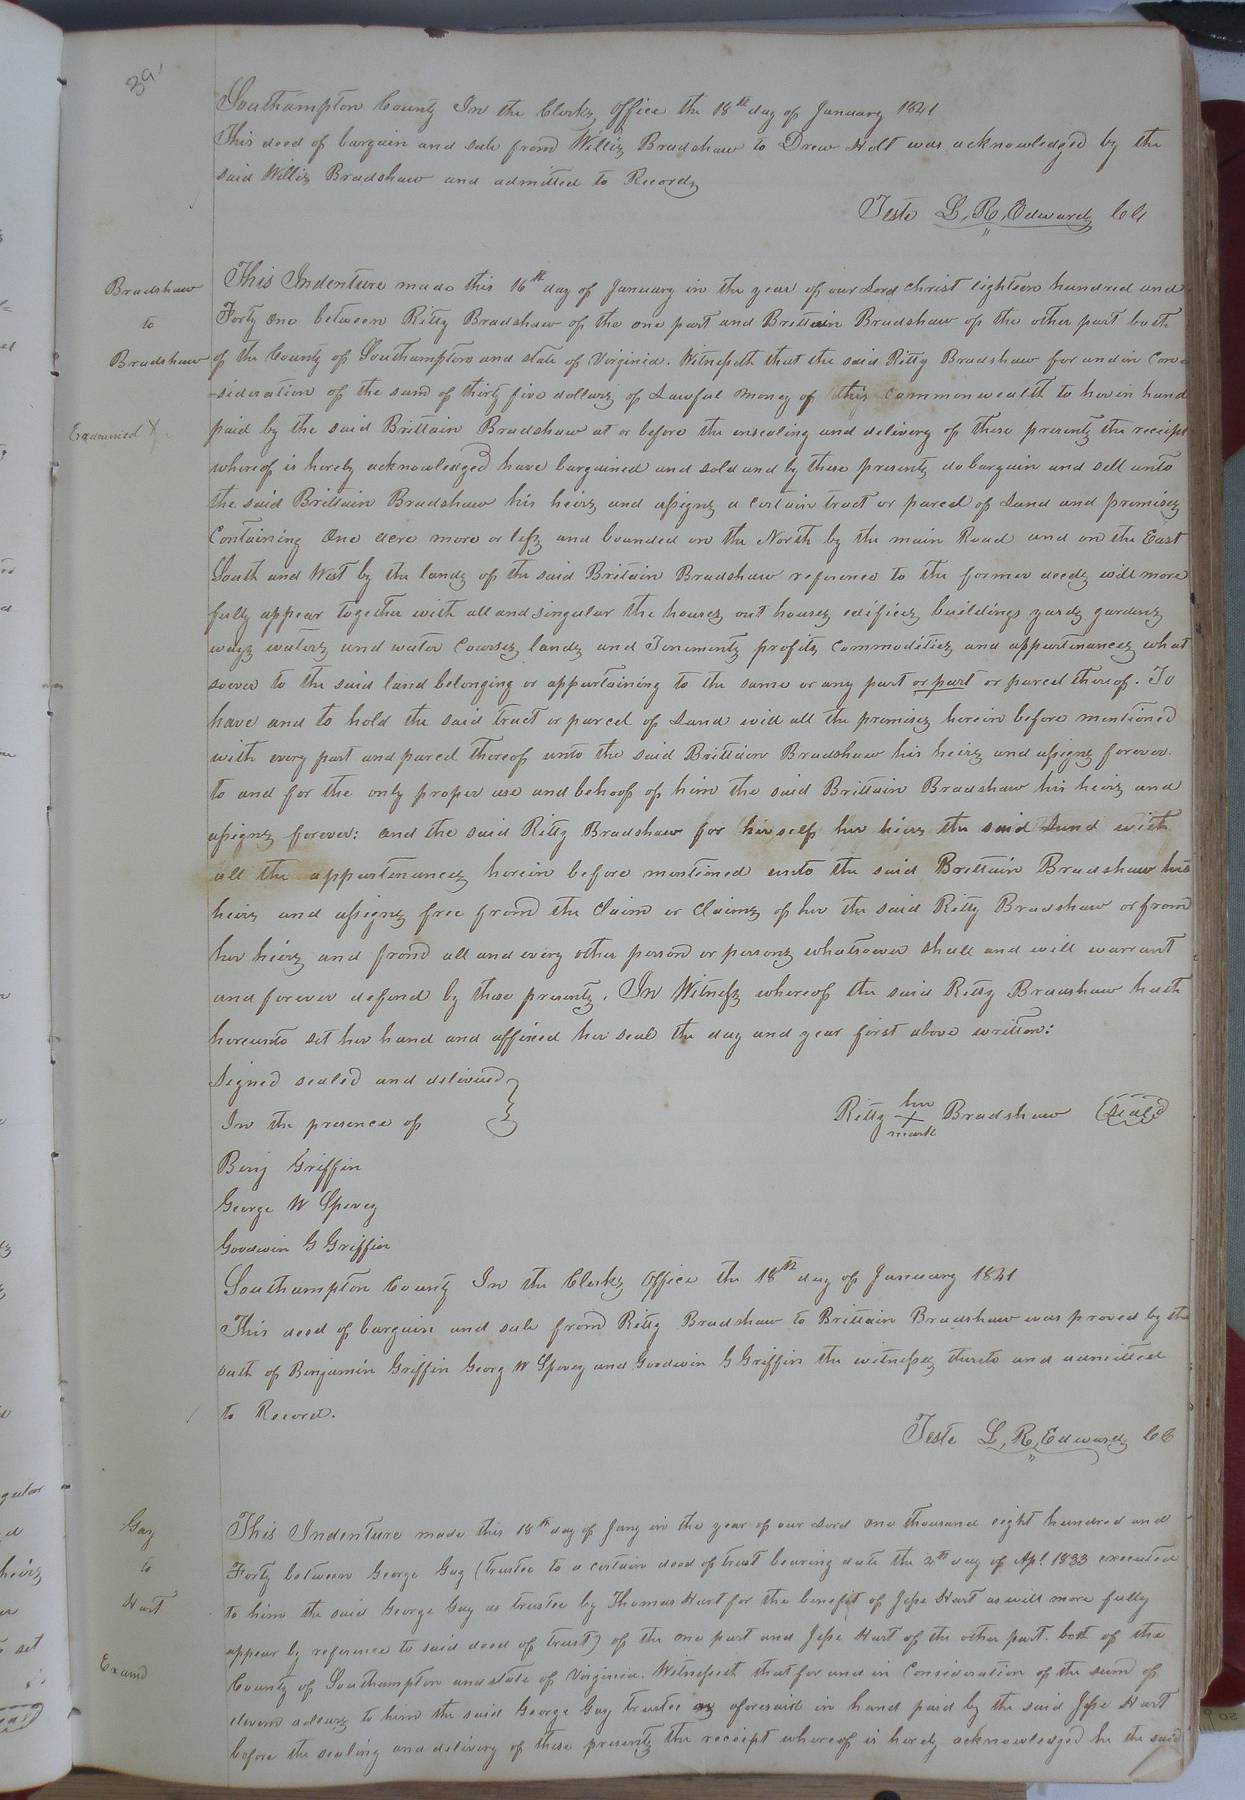 39.
Southampton County In the Clerks Office the 18th day of January 1841
This deed of bargain and sale from Willis Bradshaw to Drew Holt was acknowledged by the
said Willis Bradshaw and admitted to Records
Teste L. R. Edwards CC
Bradshaw
to
Bradshaw
Examined X
This Indenture made this 16th day of January in the year of our Lord Christ eighteen hundred and
Forty One between Ritty Bradshaw of the one part and Brittain Bradshaw of the other part both
of the County of Southampton and state of Virginia. Witnesseth that the said Ritty Bradshaw for and in Con-
-sideration of the sum of thirty five dollars of Lawful money of this commonwealth to her in hand
paid by the said Brittain Bradshaw at or before the ensealing and delivery of these presents the receipt
whereof is hereby acknowledged have bargained and sold and by these presents do bargain and sell unto
the said Brittain Bradshaw his heirs and assigns a certain tract or parcel of Land and premises
Containing One acre more or less and bounded on the North by the main Road and on the East
South and West by the lands of the said Britain Bradshaw reference to the former deeds will more
fully appear together with all and singular the houses out houses edifices buildings yards gardens
ways waters and water Courses lands and Tenements profits Commodities and appurtenances what
soever to the said land belonging or appurtaining to the same or any part or part or parcel thereof. To
have and to hold the said tract or parcel of Land will all the premises herein before mentioned
with every part and parcel thereof unto the said Brittain Bradshaw his heirs and assigns forever.
to and for the only proper use and behoof of him the said Brittain Bradshaw his heirs and
assigns forever: and the said Ritty Bradshaw for herself her heirs the said Land with
all the appurtenances herein before mentioned unto the said Brittain Bradshaw his
heirs and assigns free from the Claim or Claims of her the said Ritty Bradshaw or from
her heirs and from all and every other person or persons whatsoever shall and will warrant
and forever defend by these presents. In Witness whereof the said Ritty Bradshaw hath
hereunto set her hand and affixed her seal the day and year first above written:
Signed sealed and delivered
In the presence of
Ritty her X mark Bradshaw (Seal)
Benj Griffin
George W Spivey
Goodwin G Griffin
Southampton County In the Clerks Office the 18th day of January 1841
This deed of bargain and sale from Ritty Bradshaw to Brittain Bradshaw was proved by the
oath of Benjamin Griffin Georg W Spivey and Goodwin G Griffin the witnesses thereto and admitted
to Record.
Teste L. R. Edwards CC
Gay
to
Hart
Examd
This Indenture made this 18th day of Jany in the year of our Lord One thousand eight hundred and
Forty between George Gay (trustee to a certain deed of trust bearing date the 20th day of Apl. 1833 executed
to him the said George Gay as trustee by Thomas Hart for the benefit of Jesse Hart as will more fully
appear by reference to said deed of trust) of the one part and Jesse Hart of the other part. both of the
County of Southampton and state of Virginia. Witnesseth that for and in Consideration of the sum of
eleven dollars to him the said George Gay trustee as aforesaid in hand paid by the said Jesse Hart
before the sealing and delivery of these presents the receipt whereof is hereby acknowledged he the said